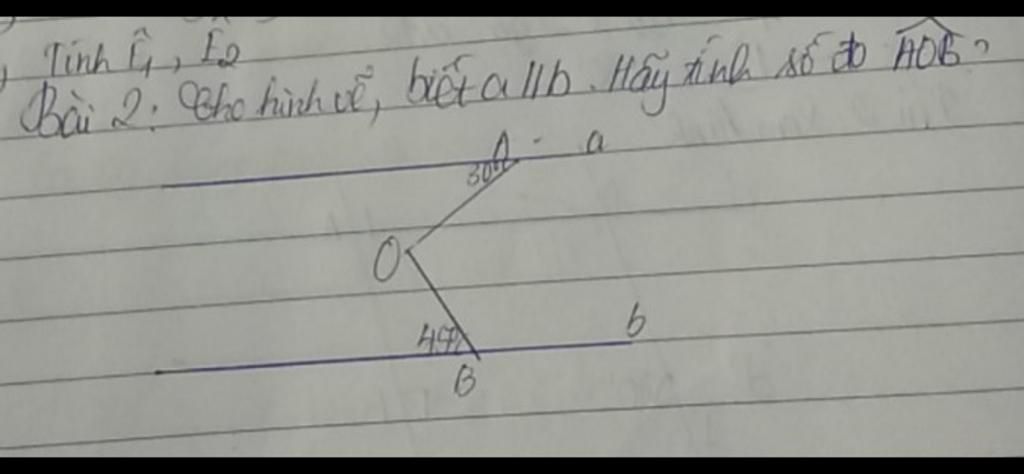 Tính Ê₁, Ê₂
Bài 2: Cho hình vẽ, biết a // b. Hãy tính số đo AOB?
A a
30°
O
45° b
B